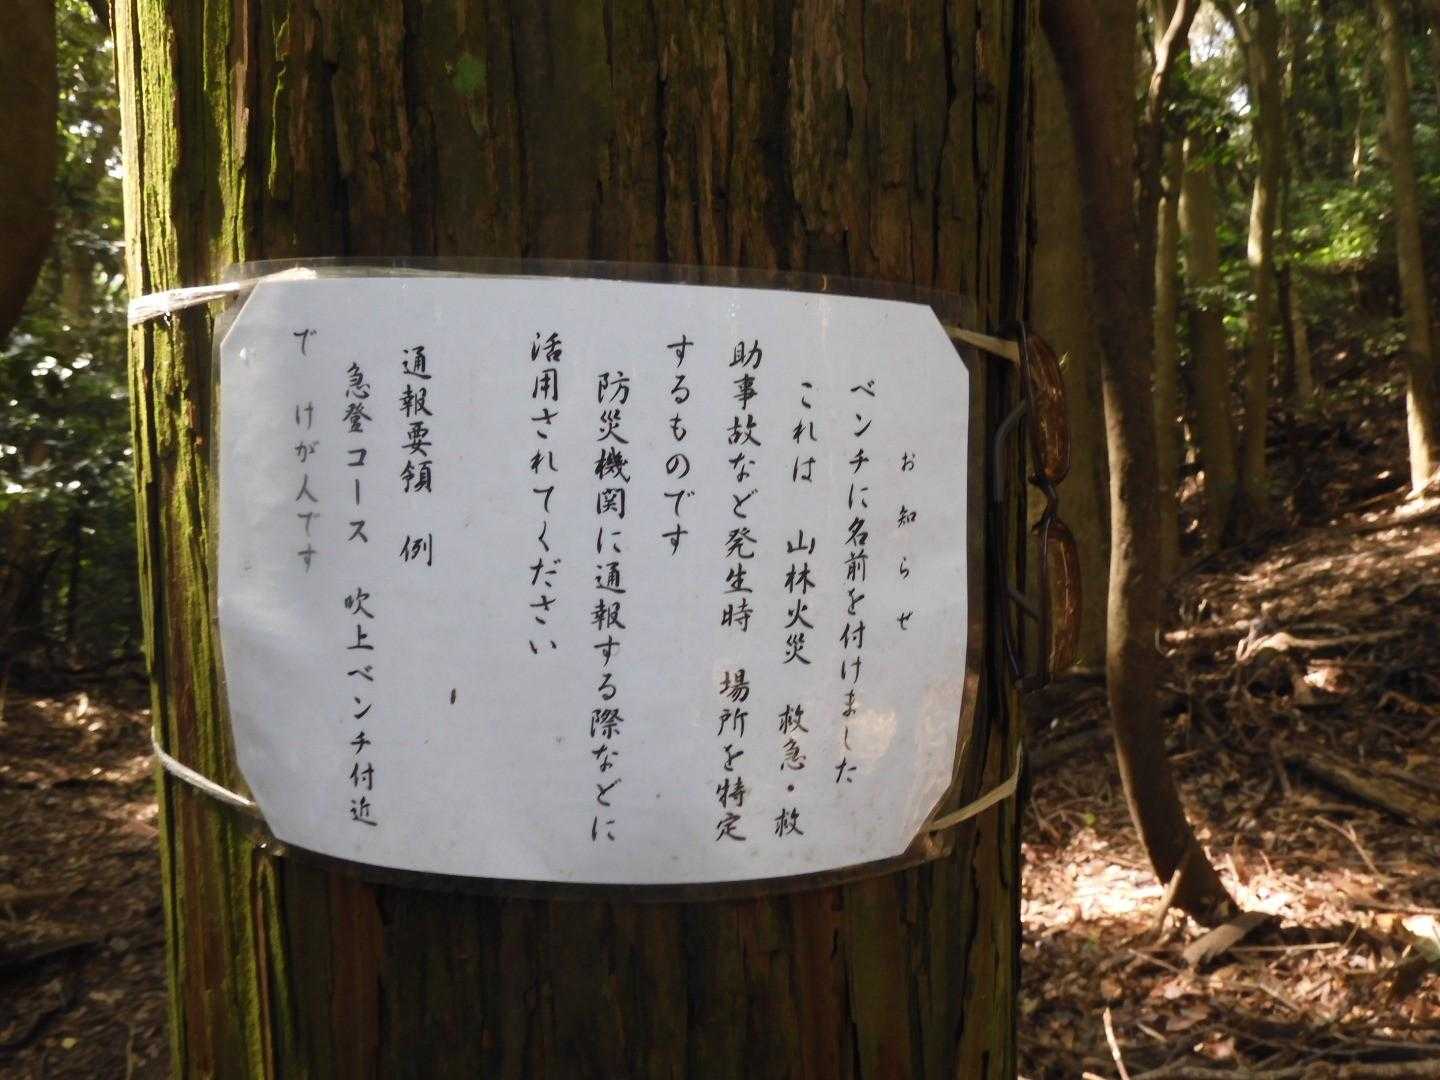 お知らせ
ベンチに名前を付けました
これは　山林火災　救急・救
助事故など発生時　場所を特定
するものです
防災機関に通報する際などに
活用されてください
通報要領　例
急登コース　吹上ベンチ付近
で　けが人です